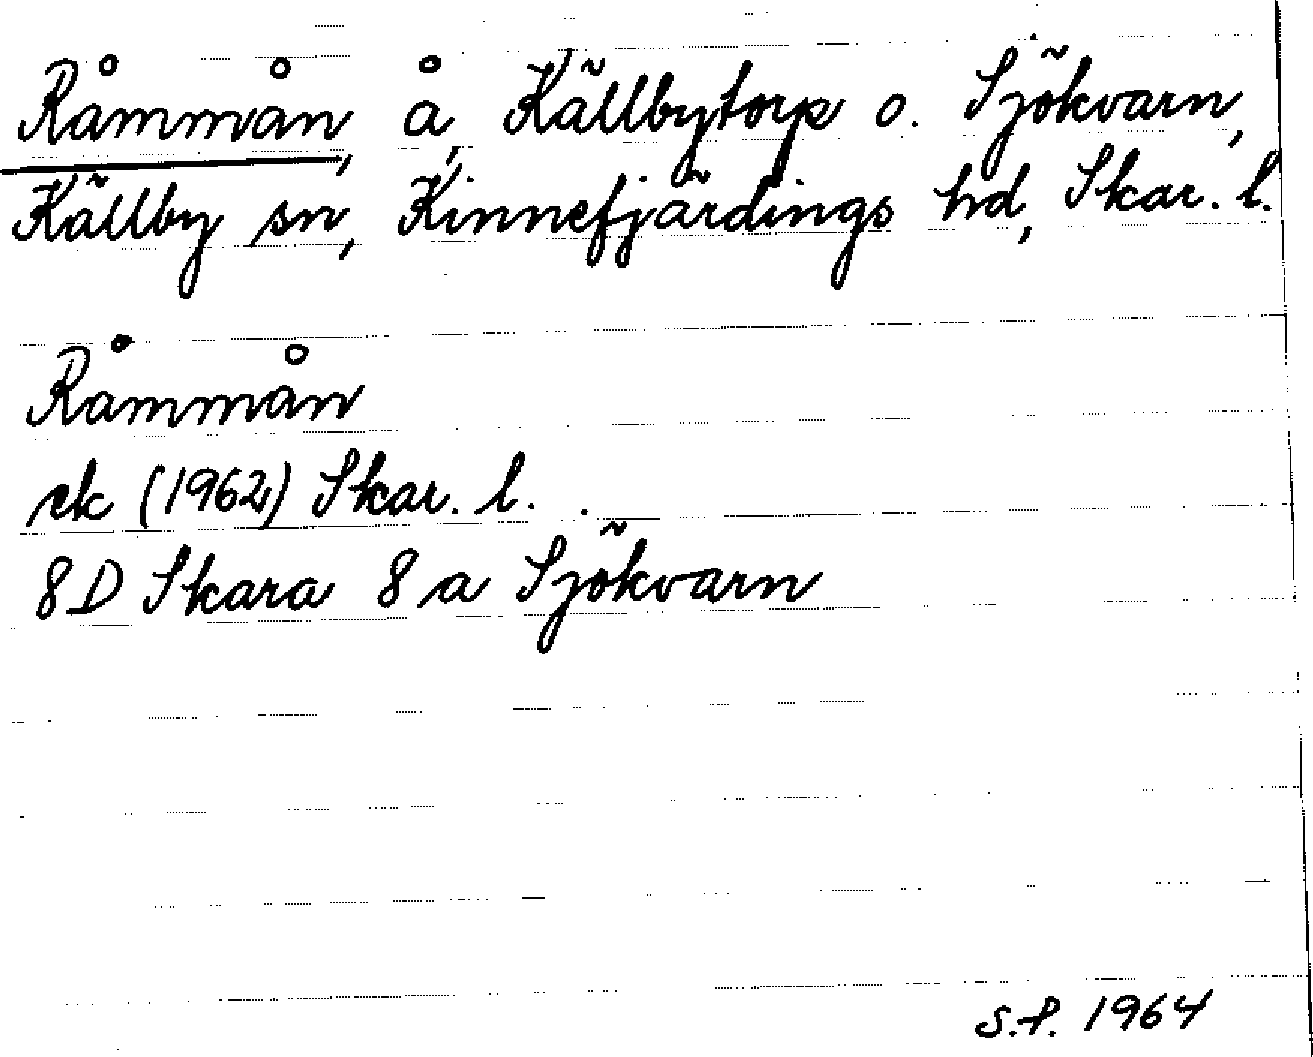 Råmmån, å, Källbytorp o. Sjökvarn,
Källby sn, Kinnefjärdings hd, Skar. l.
Råmmån
ek (1962) Skar. l.
8D Skara 8 a Sjökvarn
S.F. 1964